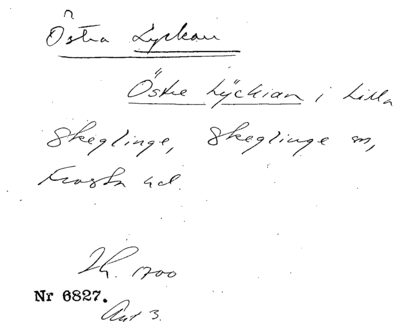 Östra Lyckan
Östre Lÿckian i Lilla
Skeglinge, Skeglinge sn,
Frosta hd.
Lh. 1700
Nr 6827.
Ant 3.